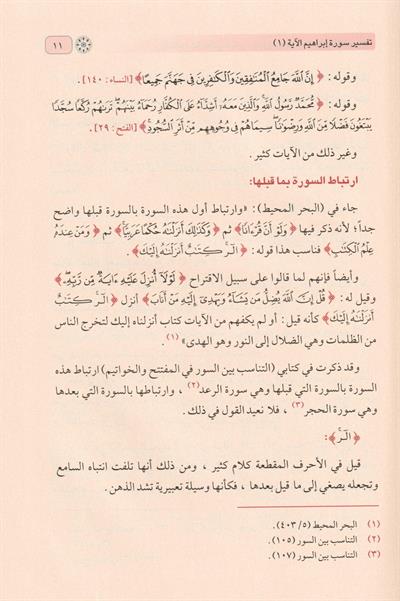 تفسير سورة إبراهيم الآية (١) ١١
وقوله : ﴿ إِنَّ اللَّهَ جَامِعُ الْمُنَافِقِينَ وَالْكَافِرِينَ فِي جَهَنَّمَ جَمِيعًا ﴾ [النساء : ١٤٠] .
وقوله : ﴿ مُّحَمَّدٌ رَّسُولُ اللَّهِ وَالَّذِينَ مَعَهُ أَشِدَّاءُ عَلَى الْكُفَّارِ رُحَمَاءُ بَيْنَهُمْ تَرَاهُمْ رُكَّعًا سُجَّدًا
يَبْتَغُونَ فَضْلًا مِّنَ اللَّهِ وَرِضْوَانًا سِيمَاهُمْ فِي وُجُوهِهِم مِّنْ أَثَرِ السُّجُودِ ﴾ [الفتح : ٢٩] .
وغير ذلك من الآيات كثير .
ارتباط السورة بما قبلها:
جاء في (البحر المحيط) : «وارتباط أول هذه السورة بالسورة قبلها واضح
جداً؛ لأنه ذكر فيها ﴿ وَلَوْ أَنَّ قُرْآنًا ﴾ ثم ﴿ وَكَذَلِكَ أَنزَلْنَاهُ حُكْمًا عَرَبِيًّا ﴾ ثم ﴿ وَمَنْ عِندَهُ
عِلْمُ الْكِتَابِ ﴾ فناسب هذا قوله : ﴿ الٓر كِتَابٌ أَنزَلْنَاهُ إِلَيْكَ ﴾ .
وأيضاً فإنهم لما قالوا على سبيل الاقتراح ﴿ لَوْلَا أُنزِلَ عَلَيْهِ آيَةٌ مِّن رَّبِّهِ ﴾
وقيل له : ﴿ قُلْ إِنَّ اللَّهَ يُضِلُّ مَن يَشَاءُ وَيَهْدِي إِلَيْهِ مَنْ أَنَابَ ﴾ أنزل ﴿ الٓر كِتَابٌ
أَنزَلْنَاهُ إِلَيْكَ ﴾ كأنه قيل : أو لم يكفهم من الآيات كتاب أنزلناه إليك لتخرج الناس
من الظلمات وهي الضلال إلى النور وهو الهدى» (١) .
وقد ذكرت في كتابي (التناسب بين السور في المفتتح والخواتيم) ارتباط هذه
السورة بالسورة التي قبلها وهي سورة الرعد(٢) ، وارتباطها بالسورة التي بعدها
وهي سورة الحجر(٣) ، فلا نعيد القول في ذلك .
﴿ الٓر ﴾ :
قيل في الأحرف المقطعة كلام كثير ، ومن ذلك أنها تلفت انتباه السامع
وتجعله يصغي إلى ما قيل بعدها ، فكأنها وسيلة تعبيرية تشد الذهن .
(١) البحر المحيط (٤٠٣/٥) .
(٢) التناسب بين السور (١٠٥) .
(٣) التناسب بين السور (١٠٧) .